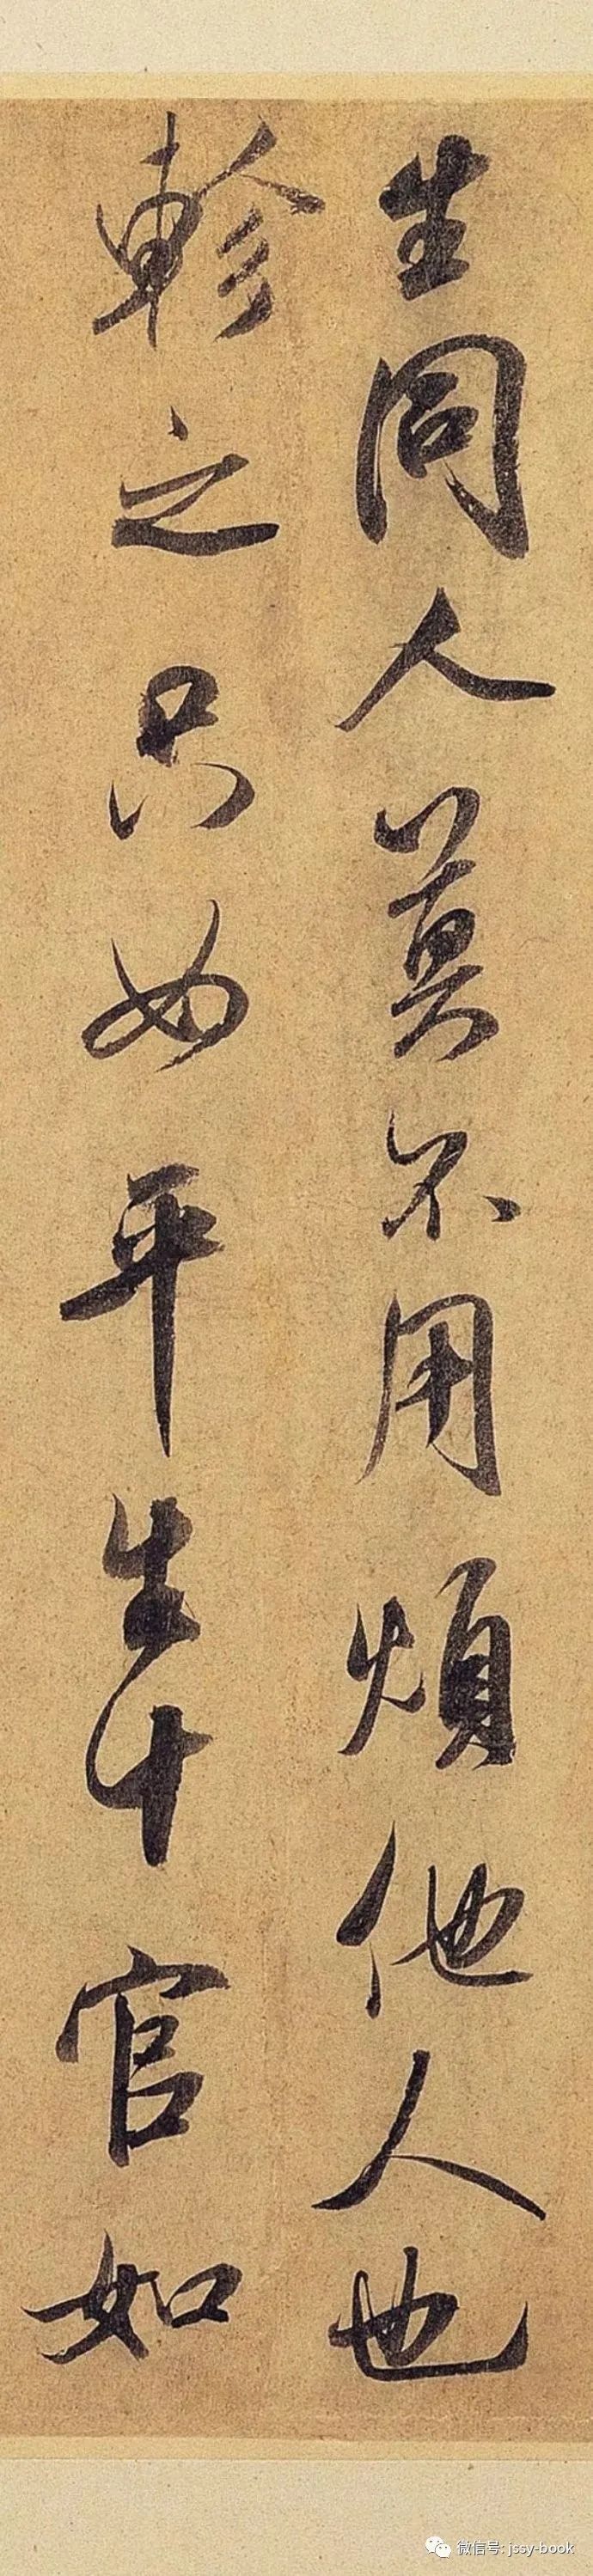 生同人莫不用煩他人也
軫之只如平生十官如
微信号: jssy-book